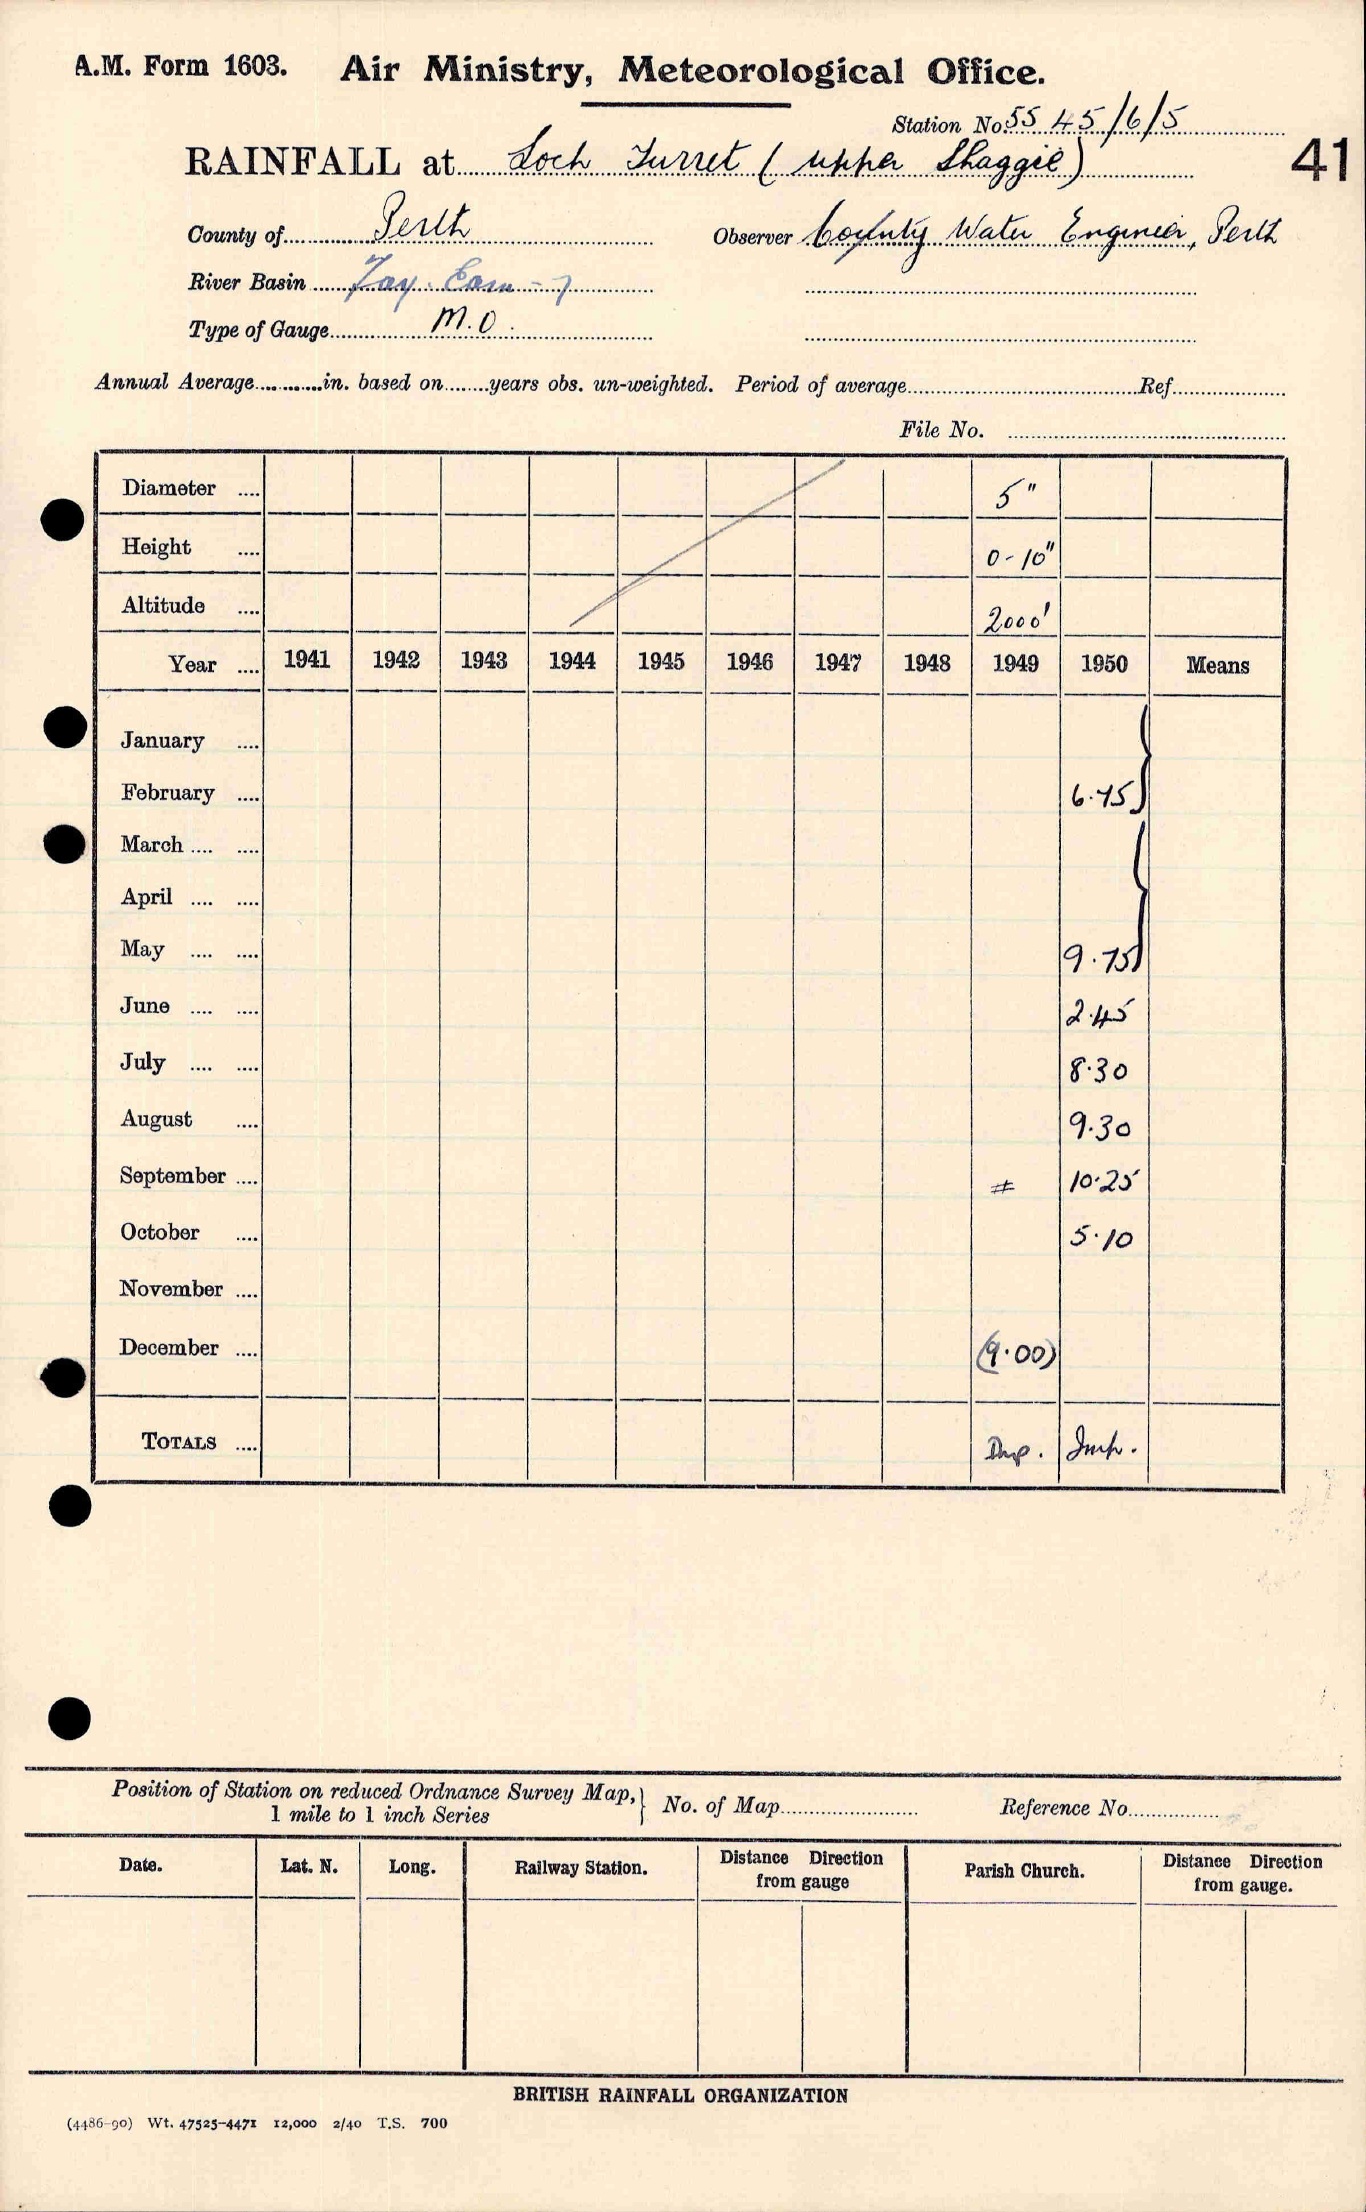 A.M. Form 1603. Air Ministry, Meteorological Office.
Station No. 5545/6/5
RAINFALL at Loch Turret (Upper Shaggie) 41
County of Perth Observer County Water Engineer, Perth
River Basin Tay. Earn - 7
Type of Gauge M.O.
Annual Average............in. based on........years obs. un-weighted. Period of average........Ref........
File No. ........
Diameter .... 5"
Height .... 0-10"
Altitude .... 2000'
Year .... 1941 1942 1943 1944 1945 1946 1947 1948 1949 1950 Means
January .... }
February .... 6.75 }
March .... .... }
April .... ....
May .... .... 9.75 }
June .... .... 2.45
July .... .... 8.30
August .... 9.30
September .... # 10.25
October .... 5.10
November ....
December .... (9.00)
TOTALS .... Imp. Imp.
Position of Station on reduced Ordnance Survey Map, } No. of Map........ Reference No........
1 mile to 1 inch Series
Date. Lat. N. Long. Railway Station. Distance Direction from gauge Parish Church. Distance Direction from gauge.
BRITISH RAINFALL ORGANIZATION
(4486-90) Wt. 47525-4471 12,000 2/40 T.S. 700